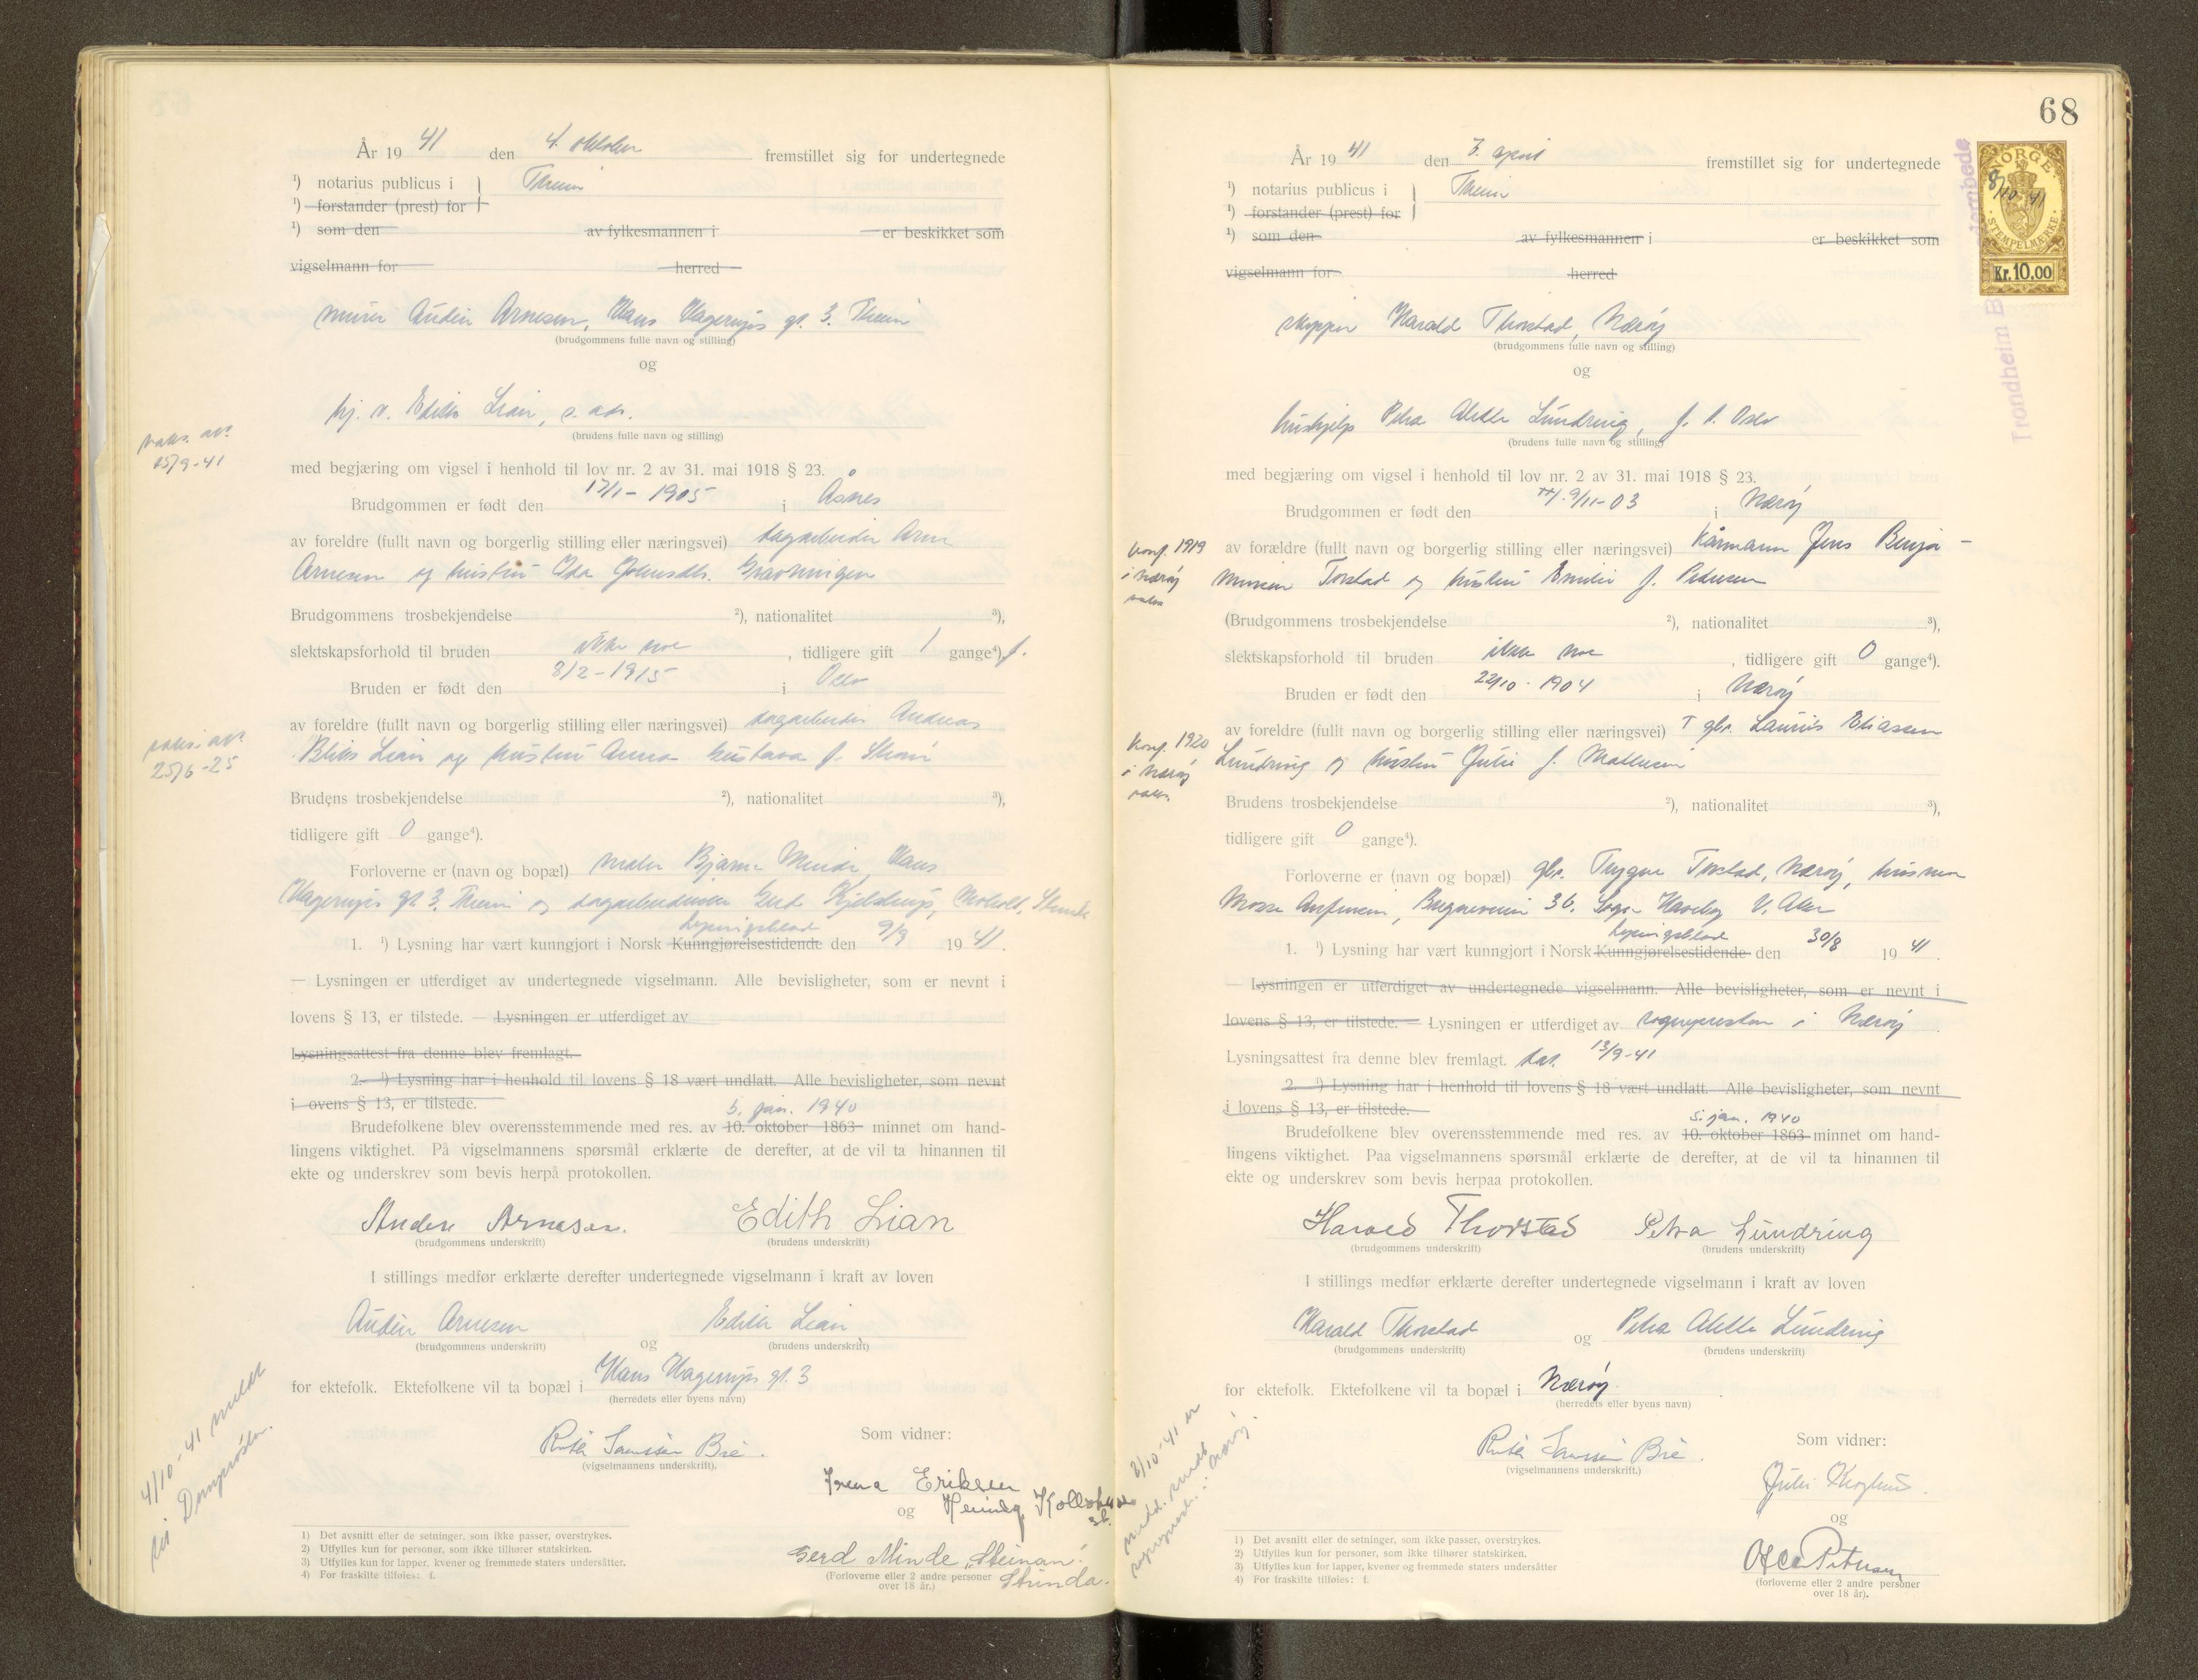 År 19 41 den 4. oktober fremstillet sig for undertegnede
¹) notarius publicus i } Thеim
¹) forstander (prest) for
¹) som den av fylkesmannen i er beskikket som
vigselmann for herred
murer Audin Arnesen, Hans Hagerups gt. 3. Theim
(brudgommens fulle navn og stilling)
og
hj. v. Edith Lian, s. adr.
(brudens fulle navn og stilling)
vaks. att.
15/9-41
med begjæring om vigsel i henhold til lov nr. 2 av 31. mai 1918 § 23.
Brudgommen er født den 17/1 - 1905 i Åsnes
av foreldre (fullt navn og borgerlig stilling eller næringsvei) dagarbeider Arne
Arnesen og hustru Ida Johnsdtr.
Brudgommens trosbekjendelse ²), nationalitet ³),
slektskapsforhold til bruden ikke noe, tidligere gift 1 gange⁴) f.
Bruden er født den 8/2 - 1915 i Oslo
av foreldre (fullt navn og borgerlig stilling eller næringsvei) dagarbeider Andreas
Lian og hustru Anna Gustava f.
25/6-25
Brudens trosbekjendelse ²), nationalitet ³),
tidligere gift 0 gange⁴).
Forloverne er (navn og bopæl) maler Bjarne Minde, Hans
Hagerups gt 3, Theim og Gerd Kjelstrup, Moholt, Strinda
lysingsblad
1. ¹) Lysning har vært kunngjort i Norsk Kunngjørelsestidende den 9/9 19 41.
— Lysningen er utferdiget av undertegnede vigselmann. Alle bevisligheter, som er nevnt i
lovens § 13, er tilstede. — Lysningen er utferdiget av
Lysningsattest fra denne blev fremlagt.
2. ¹) Lysning har i henhold til lovens § 18 vært undlatt. Alle bevisligheter, som nevnt
i ovens § 13, er tilstede.
5. jan. 1940
Brudefolkene blev overensstemmende med res. av 10. oktober 1863 minnet om hand-
lingens viktighet. På vigselmannens spørsmål erklærte de derefter, at de vil ta hinannen til
ekte og underskrev som bevis herpå protokollen.
Arnesen. Edith Lian
(brudgommens underskrift) (brudens underskrift)
I stillings medfør erklærte derefter undertegnede vigselmann i kraft av loven
Audin Arnesen og Edith Lian
(brudgommens underskrift) (brudens underskrift)
for ektefolk. Ektefolkene vil ta bopæl i Hans Hagerups gt. 3
(herredets eller byens navn)
4/10-41 meldt
til Domprosten.
Ruth Bré.
(vigselmannens underskrift).
Som vidner:
Irena Eriksen
og Henning
Gerd Minde "Steinan"
Strinda.
(Forloverne eller 2 andre personer
over 18 år.)
1) Det avsnitt eller de setninger, som ikke passer, overstrykes.
2) Utfylles kun for personer, som ikke tilhører statskirken.
3) Utfylles kun for lapper, kvener og fremmede staters undersåtter.
4) For fraskilte tilføies: f.
68
NORGE
8/10-41
STEMPELMÆRKE
Kr. 10.00
Trondheim
År 19 41 den 3. april fremstillet sig for undertegnede
¹) notarius publicus i } Theim
¹) forstander (prest) for
¹) som den av fylkesmannen i er beskikket som
vigselmann for herred
skipper Harald Thorstad, Nærøy
(brudgommens fulle navn og stilling)
og
hushjelp Petra Alette Lundring, f. t. Oslo
(brudens fulle navn og stilling)
med begjæring om vigsel i henhold til lov nr. 2 av 31. mai 1918 § 23.
Brudgommen er født den 9/11-03 i Nærøy
konf. 1919
i Nærøy
av forældre (fullt navn og borgerlig stilling eller næringsvei) kårmann Jens Benja-
minsen Torstad og hustru Emilie f. Pedersen
(Brudgommens trosbekjendelse ²), nationalitet ³),
slektskapsforhold til bruden ikke noe, tidligere gift 0 gange⁴).
Bruden er født den 22/10 - 1904 i Nærøy
konf. 1920
i Nærøy
vaks.
av foreldre (fullt navn og borgerlig stilling eller næringsvei) gbr. Laurits Eliassen
Lundring og hustru Julie f.
Brudens trosbekjendelse ²), nationalitet ³),
tidligere gift 0 gange⁴).
Forloverne er (navn og bopæl) gbr. Trygve Torstad, Nærøy,
36. V. Aker
lysingsblad
1. ¹) Lysning har vært kunngjort i Norsk Kunngjørelsestidende den 30/8 19 41.
— Lysningen er utferdiget av undertegnede vigselmann. Alle bevisligheter, som er nevnt i
lovens § 13, er tilstede. — Lysningen er utferdiget av sognepresten i Nærøy
Lysningsattest fra denne blev fremlagt. dat. 13/9-41
2. ¹) Lysning har i henhold til lovens § 18 vært undlatt. Alle bevisligheter, som nevnt
i lovens § 13, er tilstede.
5. jan. 1940
Brudefolkene blev overensstemmende med res. av 10. oktober 1863 minnet om hand-
lingens viktighet. Paa vigselmannens spørsmål erklærte de derefter, at de vil ta hinannen til
ekte og underskrev som bevis herpaa protokollen.
Harald Thorstad Petra Lundring
(brudgommens underskrift) (brudens underskrift)
I stillings medfør erklærte derefter undertegnede vigselmann i kraft av loven
Harald Thorstad og Petra Alette Lundring
(brudgommens underskrift) (brudens underskrift)
for ektefolk. Ektefolkene vil ta bopæl i Nærøy.
(herredets eller byens navn)
8/10-41 er
medd. sendt
sogneprest. i Nærøy.
Ruth Bré.
(vigselmannens underskrift.)
Som vidner:
Julie
og
Petersen
(forloverne eller 2 andre personer
over 18 år).
1) Det avsnitt eller de setninger, som ikke passer, overstrykes.
2) Utfylles kun for personer, som ikke tilhører statskirken.
3) Utfylles kun for lapper, kvener og fremmede staters undersåtter
4) For fraskilte tilføies: f.